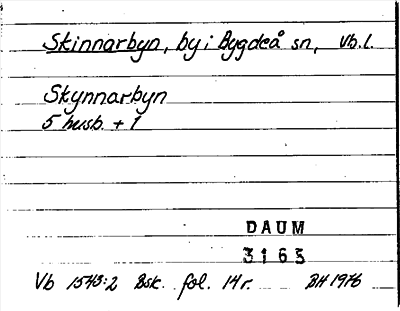 Skinnarbyn, by i Bygdeå sn, Vb.l.
Skynnarbyn
5 husb. + 1
DAUM
3163
Vb 1543:2 Bsk. fol. 14 r. BH 1976